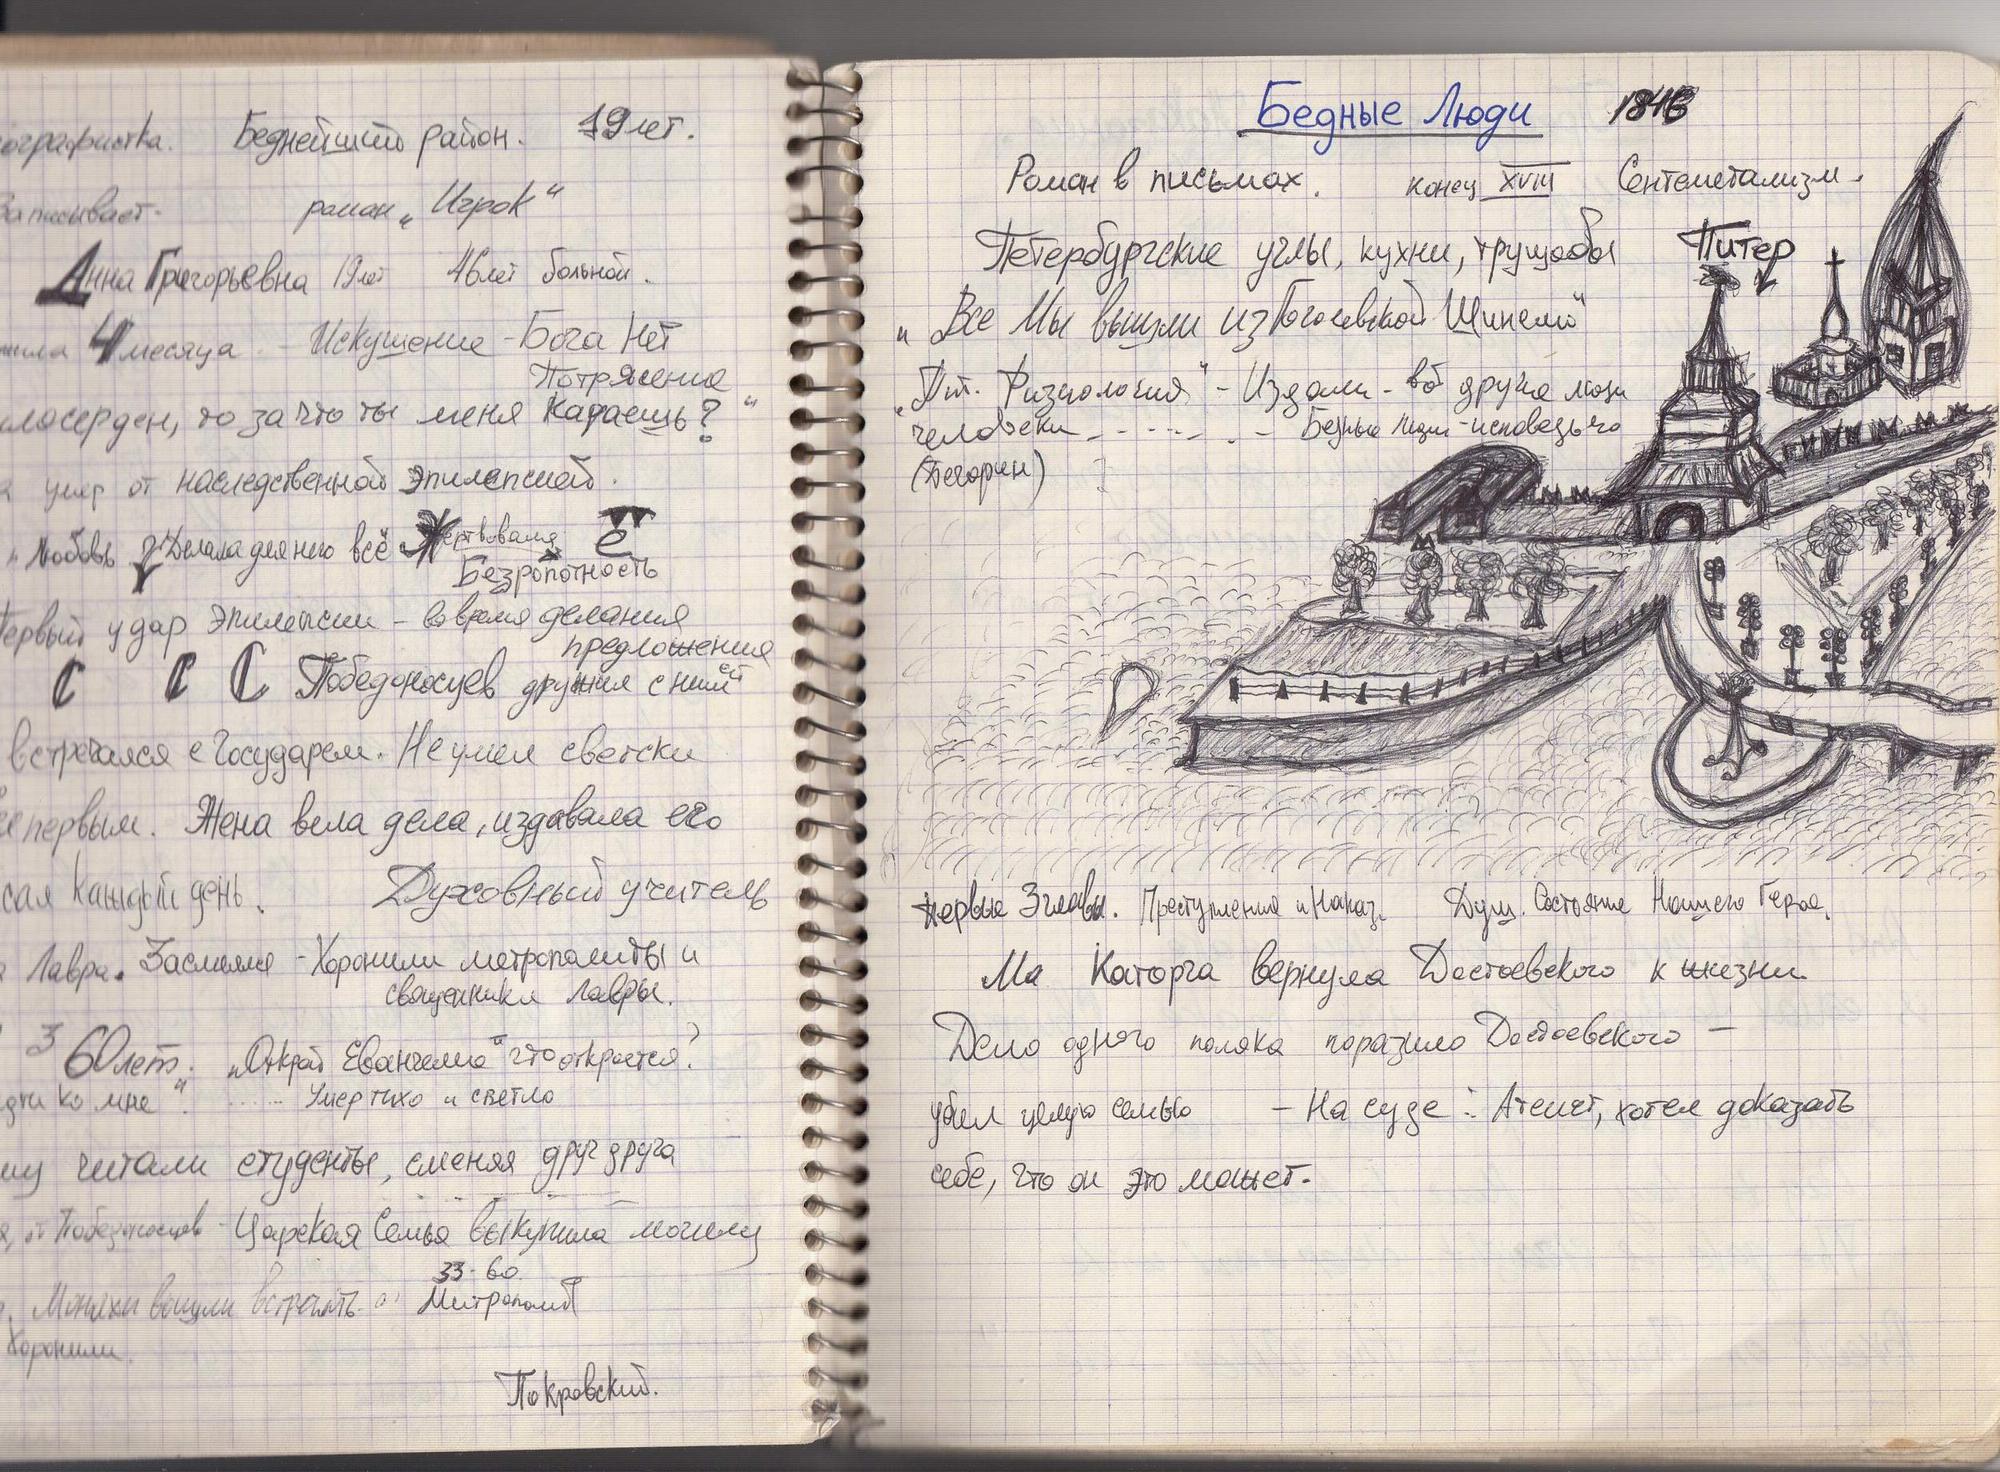 Беднейший район. 19 лет.
Записывает. роман „Игрок“
Анна Григорьевна 19 лет 46 лет больной.
4 месяца - Искушение - Бога Нет
Потрясение
то за что ты меня Караешь?“
умер от наследственной эпилепсией.
Любовь Делала для него всё Жертвовала
Безропотность
Первый удар эпилепсии - во время делания
предложения
с с С Победоносцев дружил с ним
встречался с Государем. Не умел светски
первым. Жена вела дела, издавала его
Каждый день. Духовный учитель
Лавра. - Хоронили митрополиты и
священники Лавры.
60 лет. „Открой Евангелие“ что откроется?
ко мне“. ...... Умер тихо и светло
читали студенты, сменяя друг друга
Победоносцев - Царская Семья выкупила могилу
33-60.
Монахи вышли встречать Митрополит
Хоронили.
Покровский.
Бедные Люди 1846
Роман в письмах. конец XVIII Сентеметализм.
Петербургские углы, кухни, трущобы Питер
„Все Мы вышли из Гоголевской Шинели“
„Пт. Физиология“ - Издали - вот другие люди
человеки - - - - - - Бедные люди - исповедь
(Печорин)
Первые 3 главы. Преступление и Наказ. Душ. Состояние Нашего Героя.
Ма Каторга вернула Достоевского к жизни
Дело одного поляка поразило Достоевского -
убил целую семью - На суде : Атеист, хотел доказать
себе, что он это может.